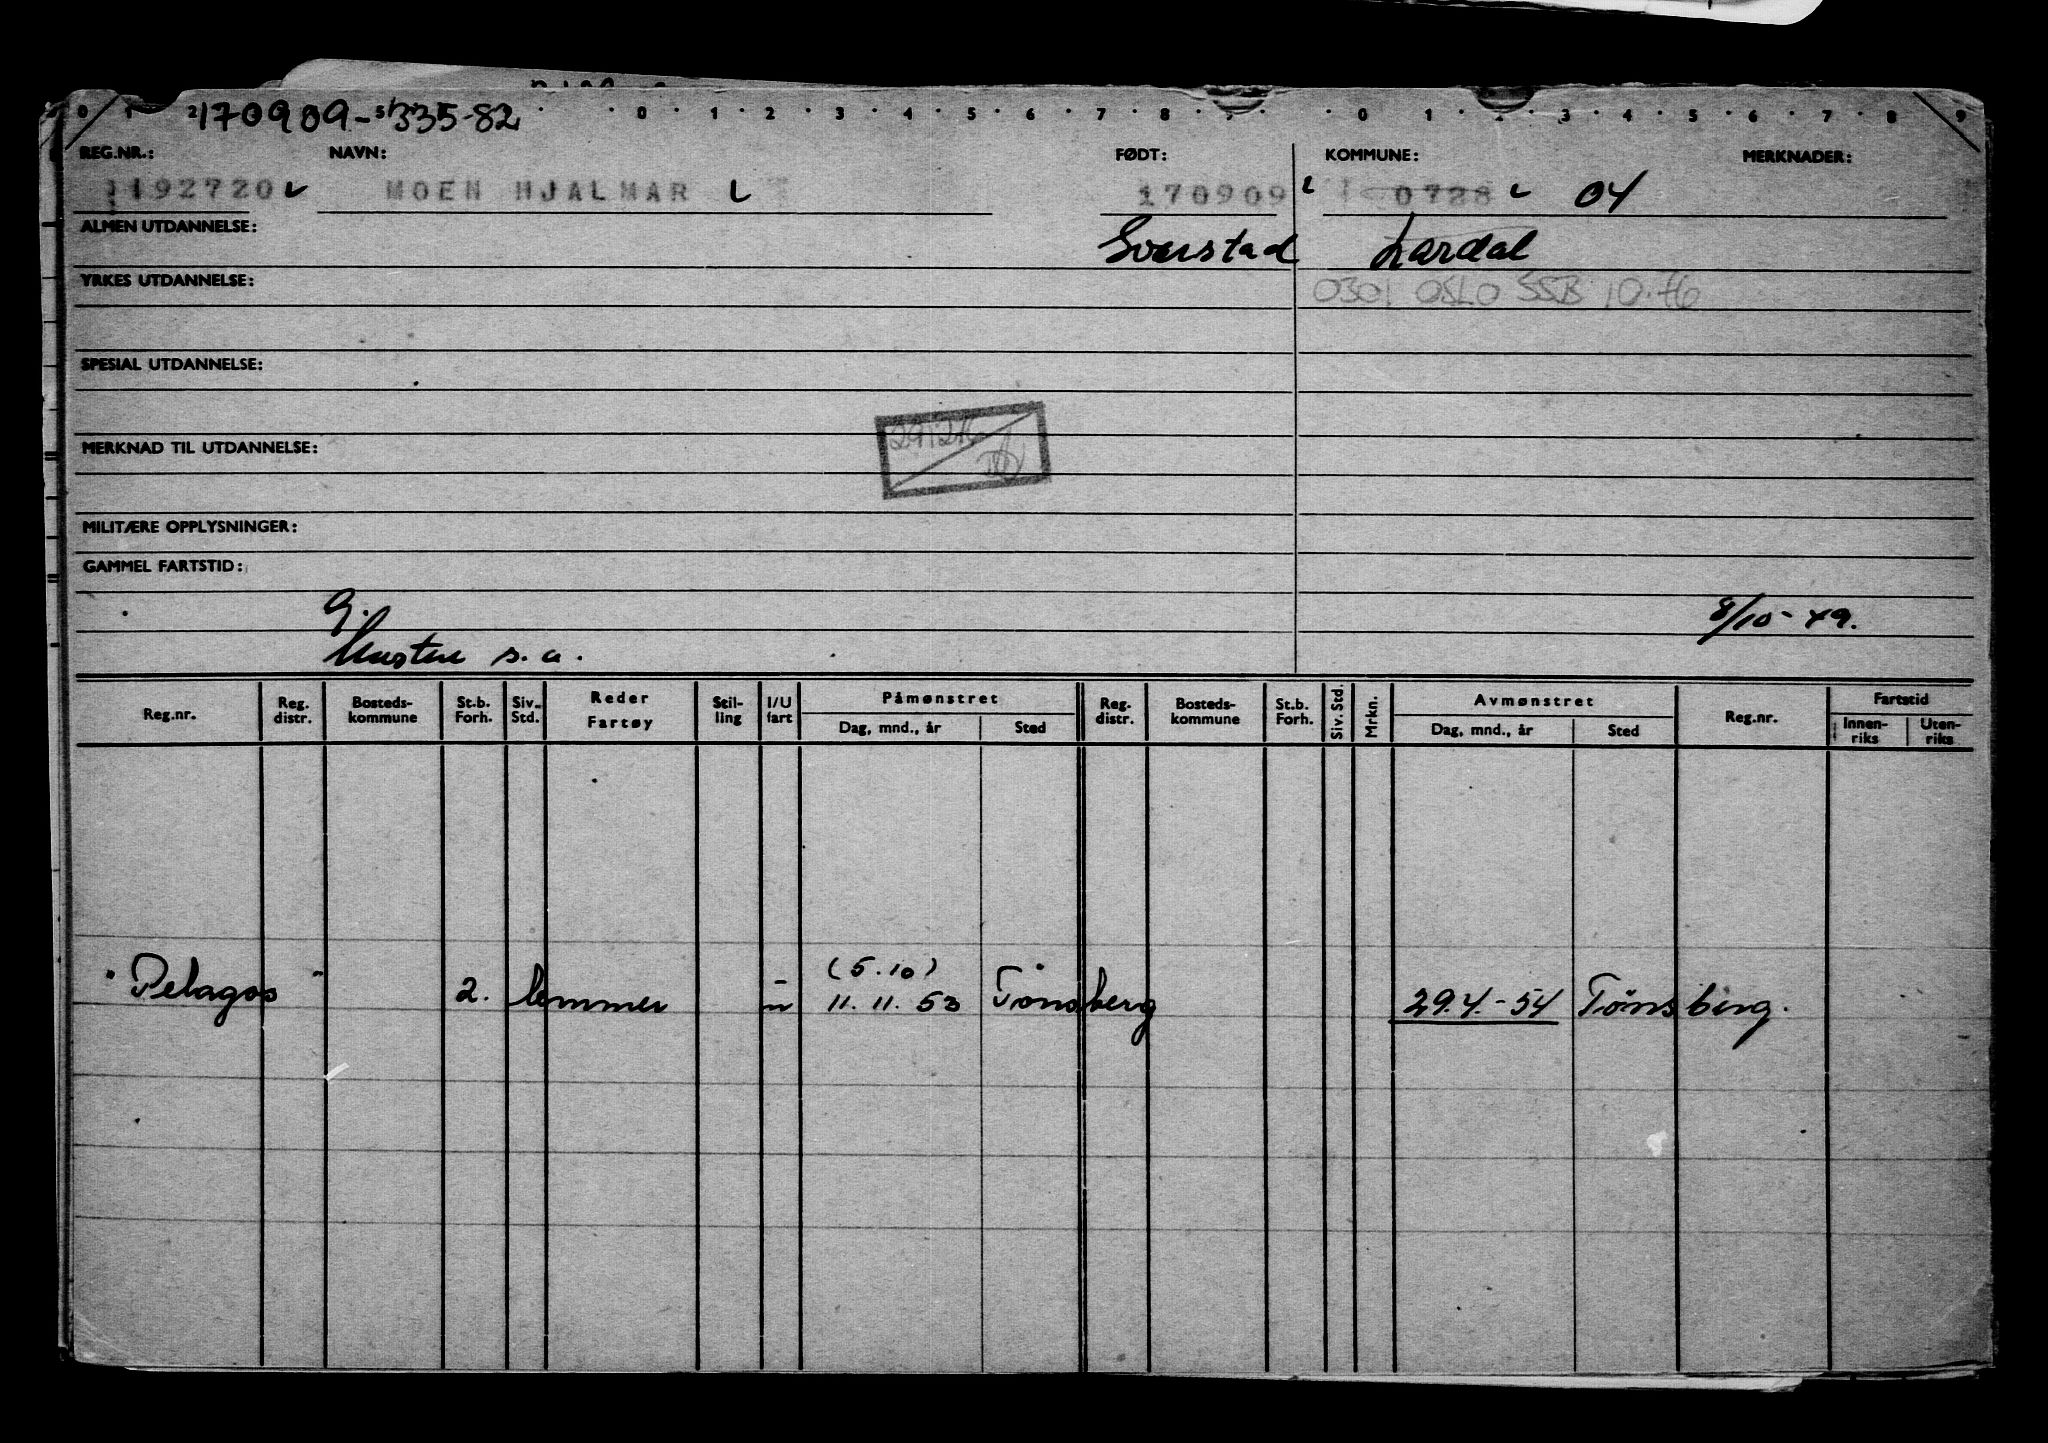 170909-33582
0 1 2 5 0 1 2 3 4 5 6 7 8 9 0 1 2 3 4 5 6 7 8 9
REG.NR.: NAVN: FØDT: KOMMUNE: MERKNADER:
192720 MOEN HJALMAR 170909 0728 04
ALMEN UTDANNELSE: Lardal
YRKES UTDANNELSE: 0301 OSLO SSB 10.76
SPESIAL UTDANNELSE:
MERKNAD TIL UTDANNELSE:
MILITÆRE OPPLYSNINGER:
GAMMEL FARTSTID:
g. 8/10-49.
s.a.
Reg.nr. Reg. distr. Bosteds-kommune St.b. Forh. Siv. Std. Reder Fartøy Stil-ling I/U fart Påmønstret Dag, mnd., år Sted Reg. distr. Bosteds-kommune St.b. Forh. Siv. Std. Mrkn. Avmønstret Dag, mnd., år Sted Reg.nr. Fartstid Innen-riks Uten-riks
(5.10)
"Pelagos" 2. lemmer u 11.11.53 Tønsberg 29.4.-54 Tønsberg.